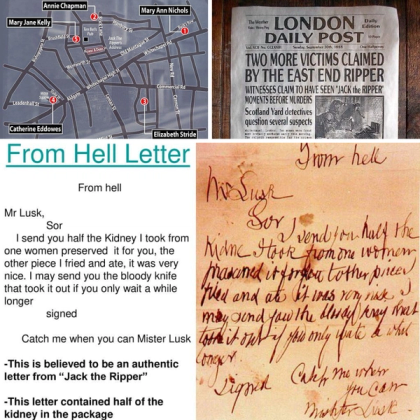 Annie Chapman
Mary Jane Kelly
Mary Ann Nichols
2
1
5
4
3
Commercial Rd
Leadenhall St
Catherine Eddowes
Elizabeth Stride
LONDON
DAILY POST
TWO MORE VICTIMS CLAIMED
BY THE EAST END RIPPER
WITNESSES CLAIM TO HAVE SEEN 'JACK the RIPPER'
MOMENTS BEFORE MURDERS
Scotland Yard detectives
question several suspects
From Hell Letter
From hell
Mr Lusk,
Sor
I send you half the Kidney I took from
one women preserved it for you, the
other piece I fried and ate, it was very
nice. I may send you the bloody knife
that took it out if you only wait a while
longer
signed
Catch me when you can Mister Lusk
-This is believed to be an authentic
letter from "Jack the Ripper"
-This letter contained half of the
kidney in the package
From hell
Mr Lusk
Sor
I send you half the
Kidne I took from one women
prasarved it for you tother piece
fried and ate it was very nise I
may send you the bloody knif that
took it out if you only wate a whil
longer
Signed Catch me when
you can
Mishter Lusk